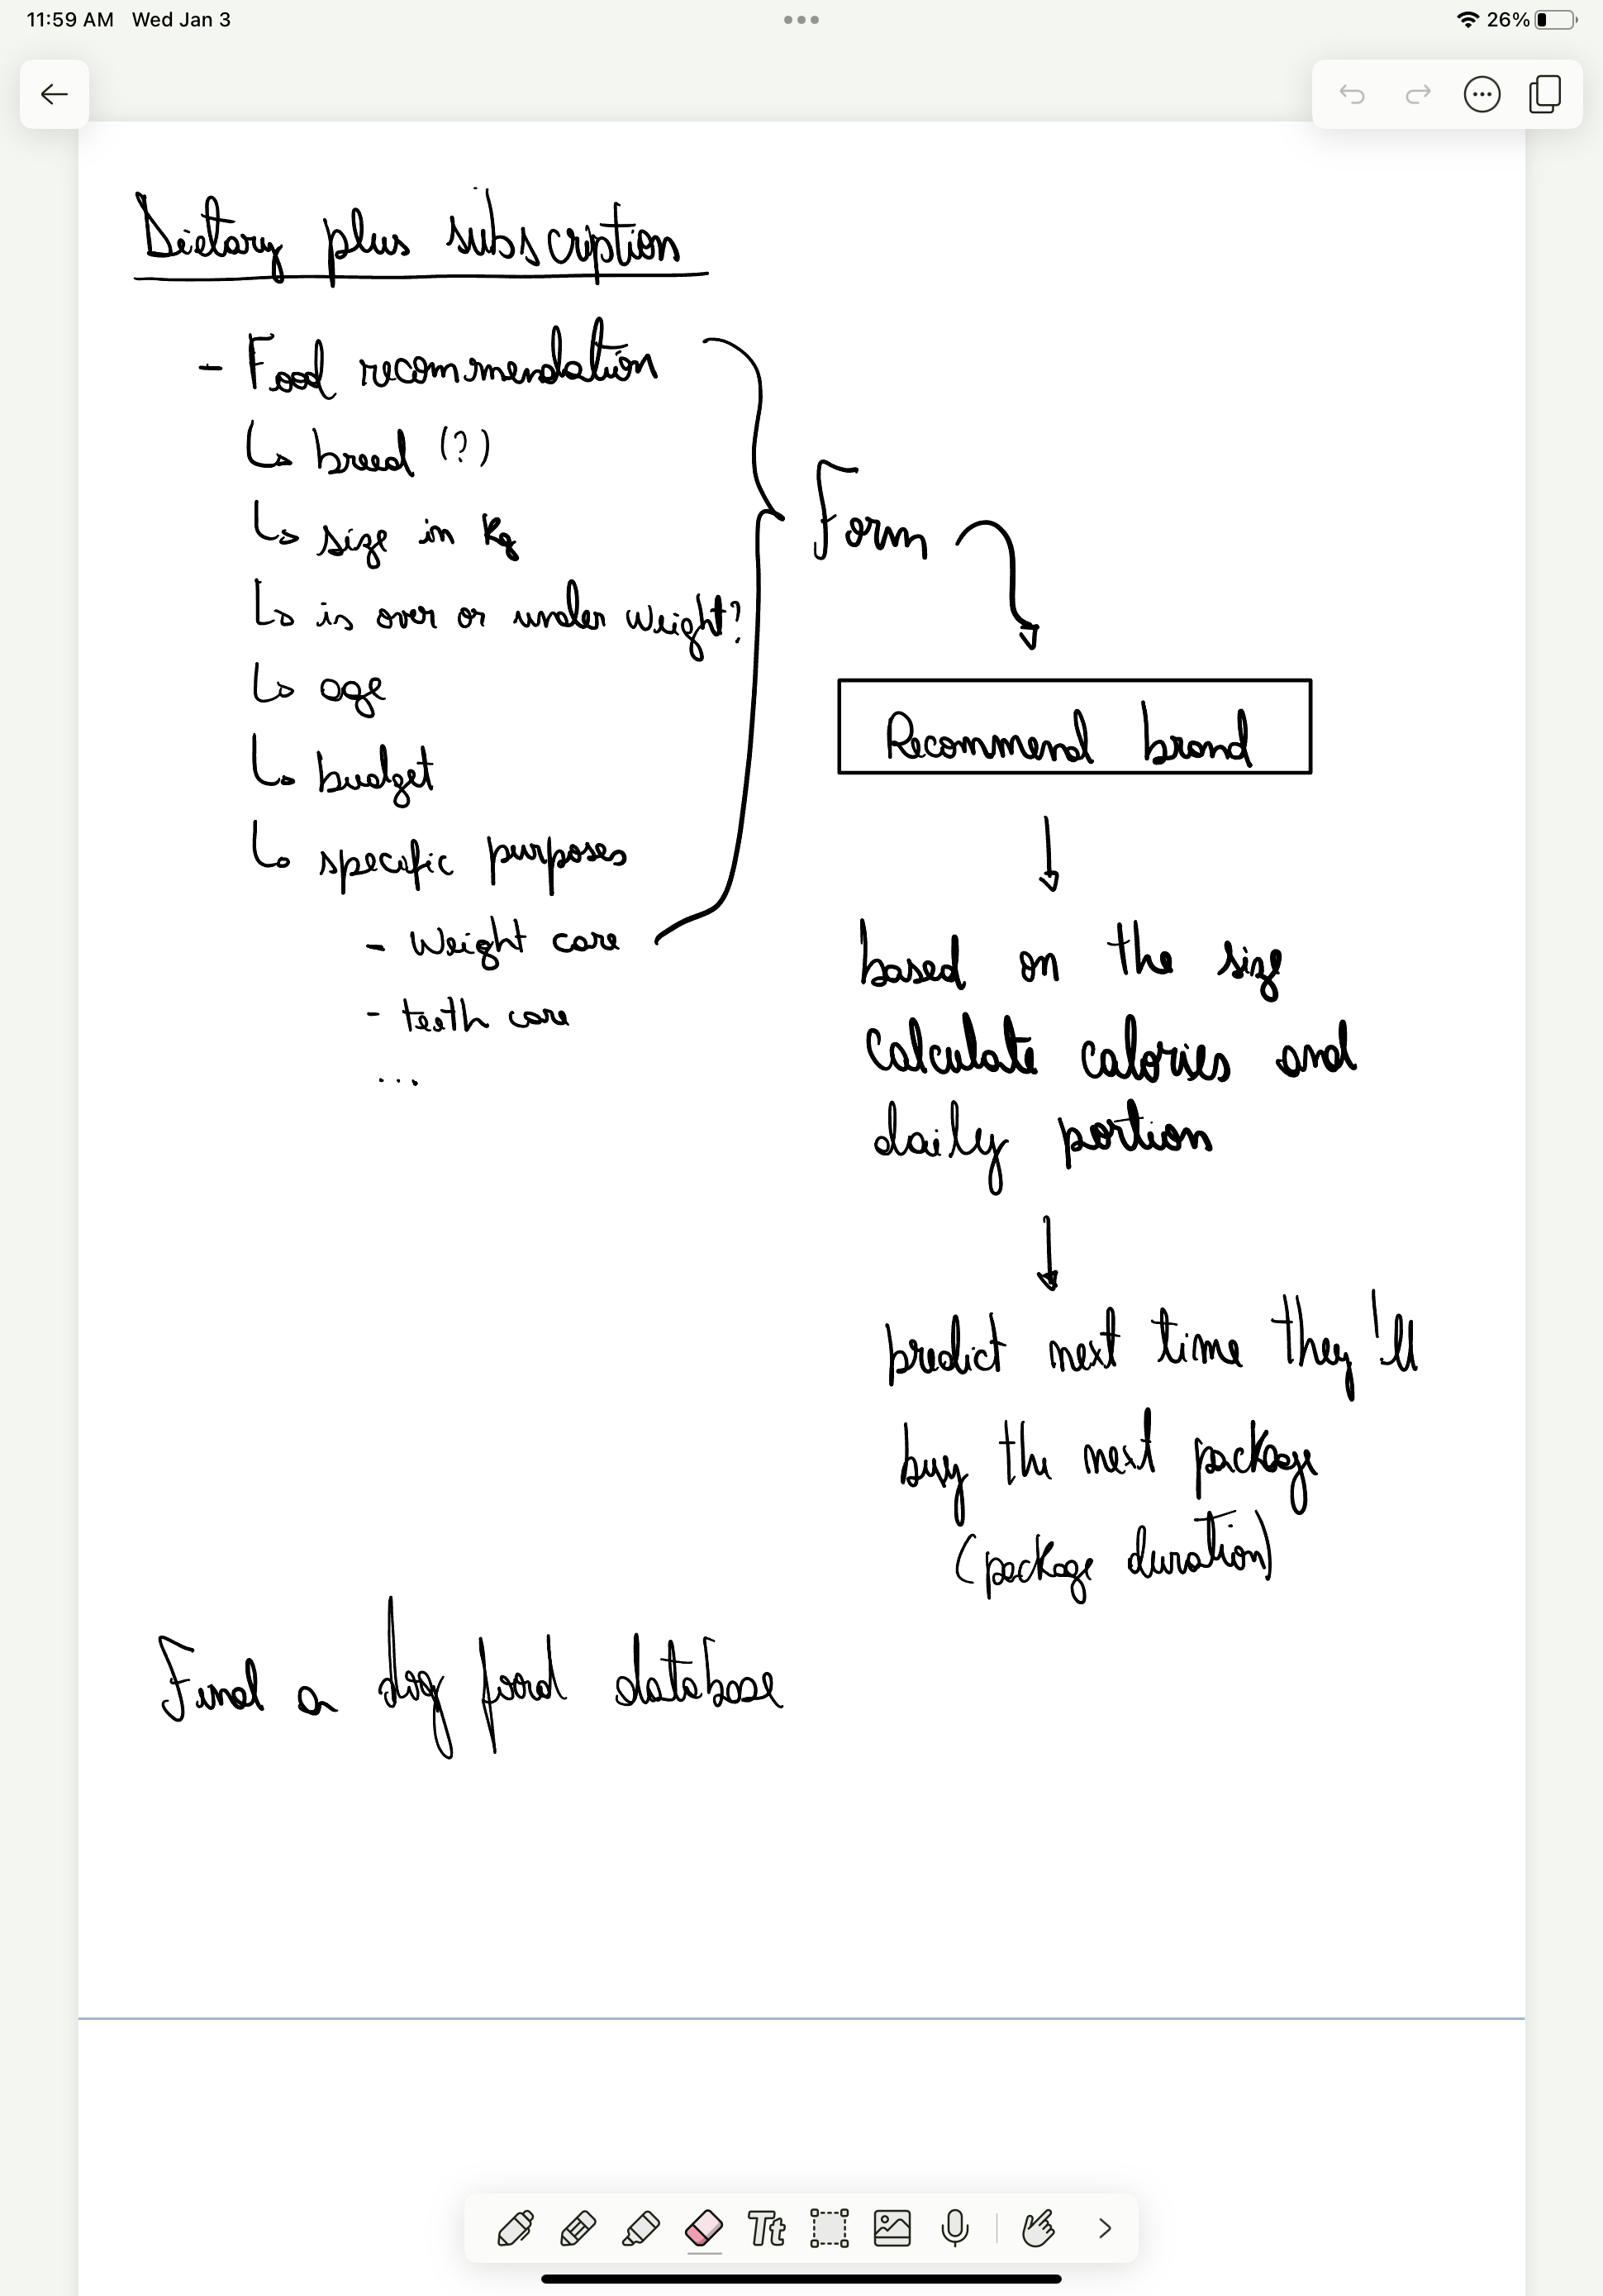 11:59 AM Wed Jan 3
26%
Dietary plus subscription
- Food recommendation
↳ breed (?)
↳ size in kg
↳ is over or under weight?
↳ age
↳ budget
↳ specific purposes
- Weight care
- teeth care
...
Form
Recommend brand
based on the size
calculate calories and
daily portion
predict next time they'll
buy the next package
(package duration)
Find a dog food database
Tt